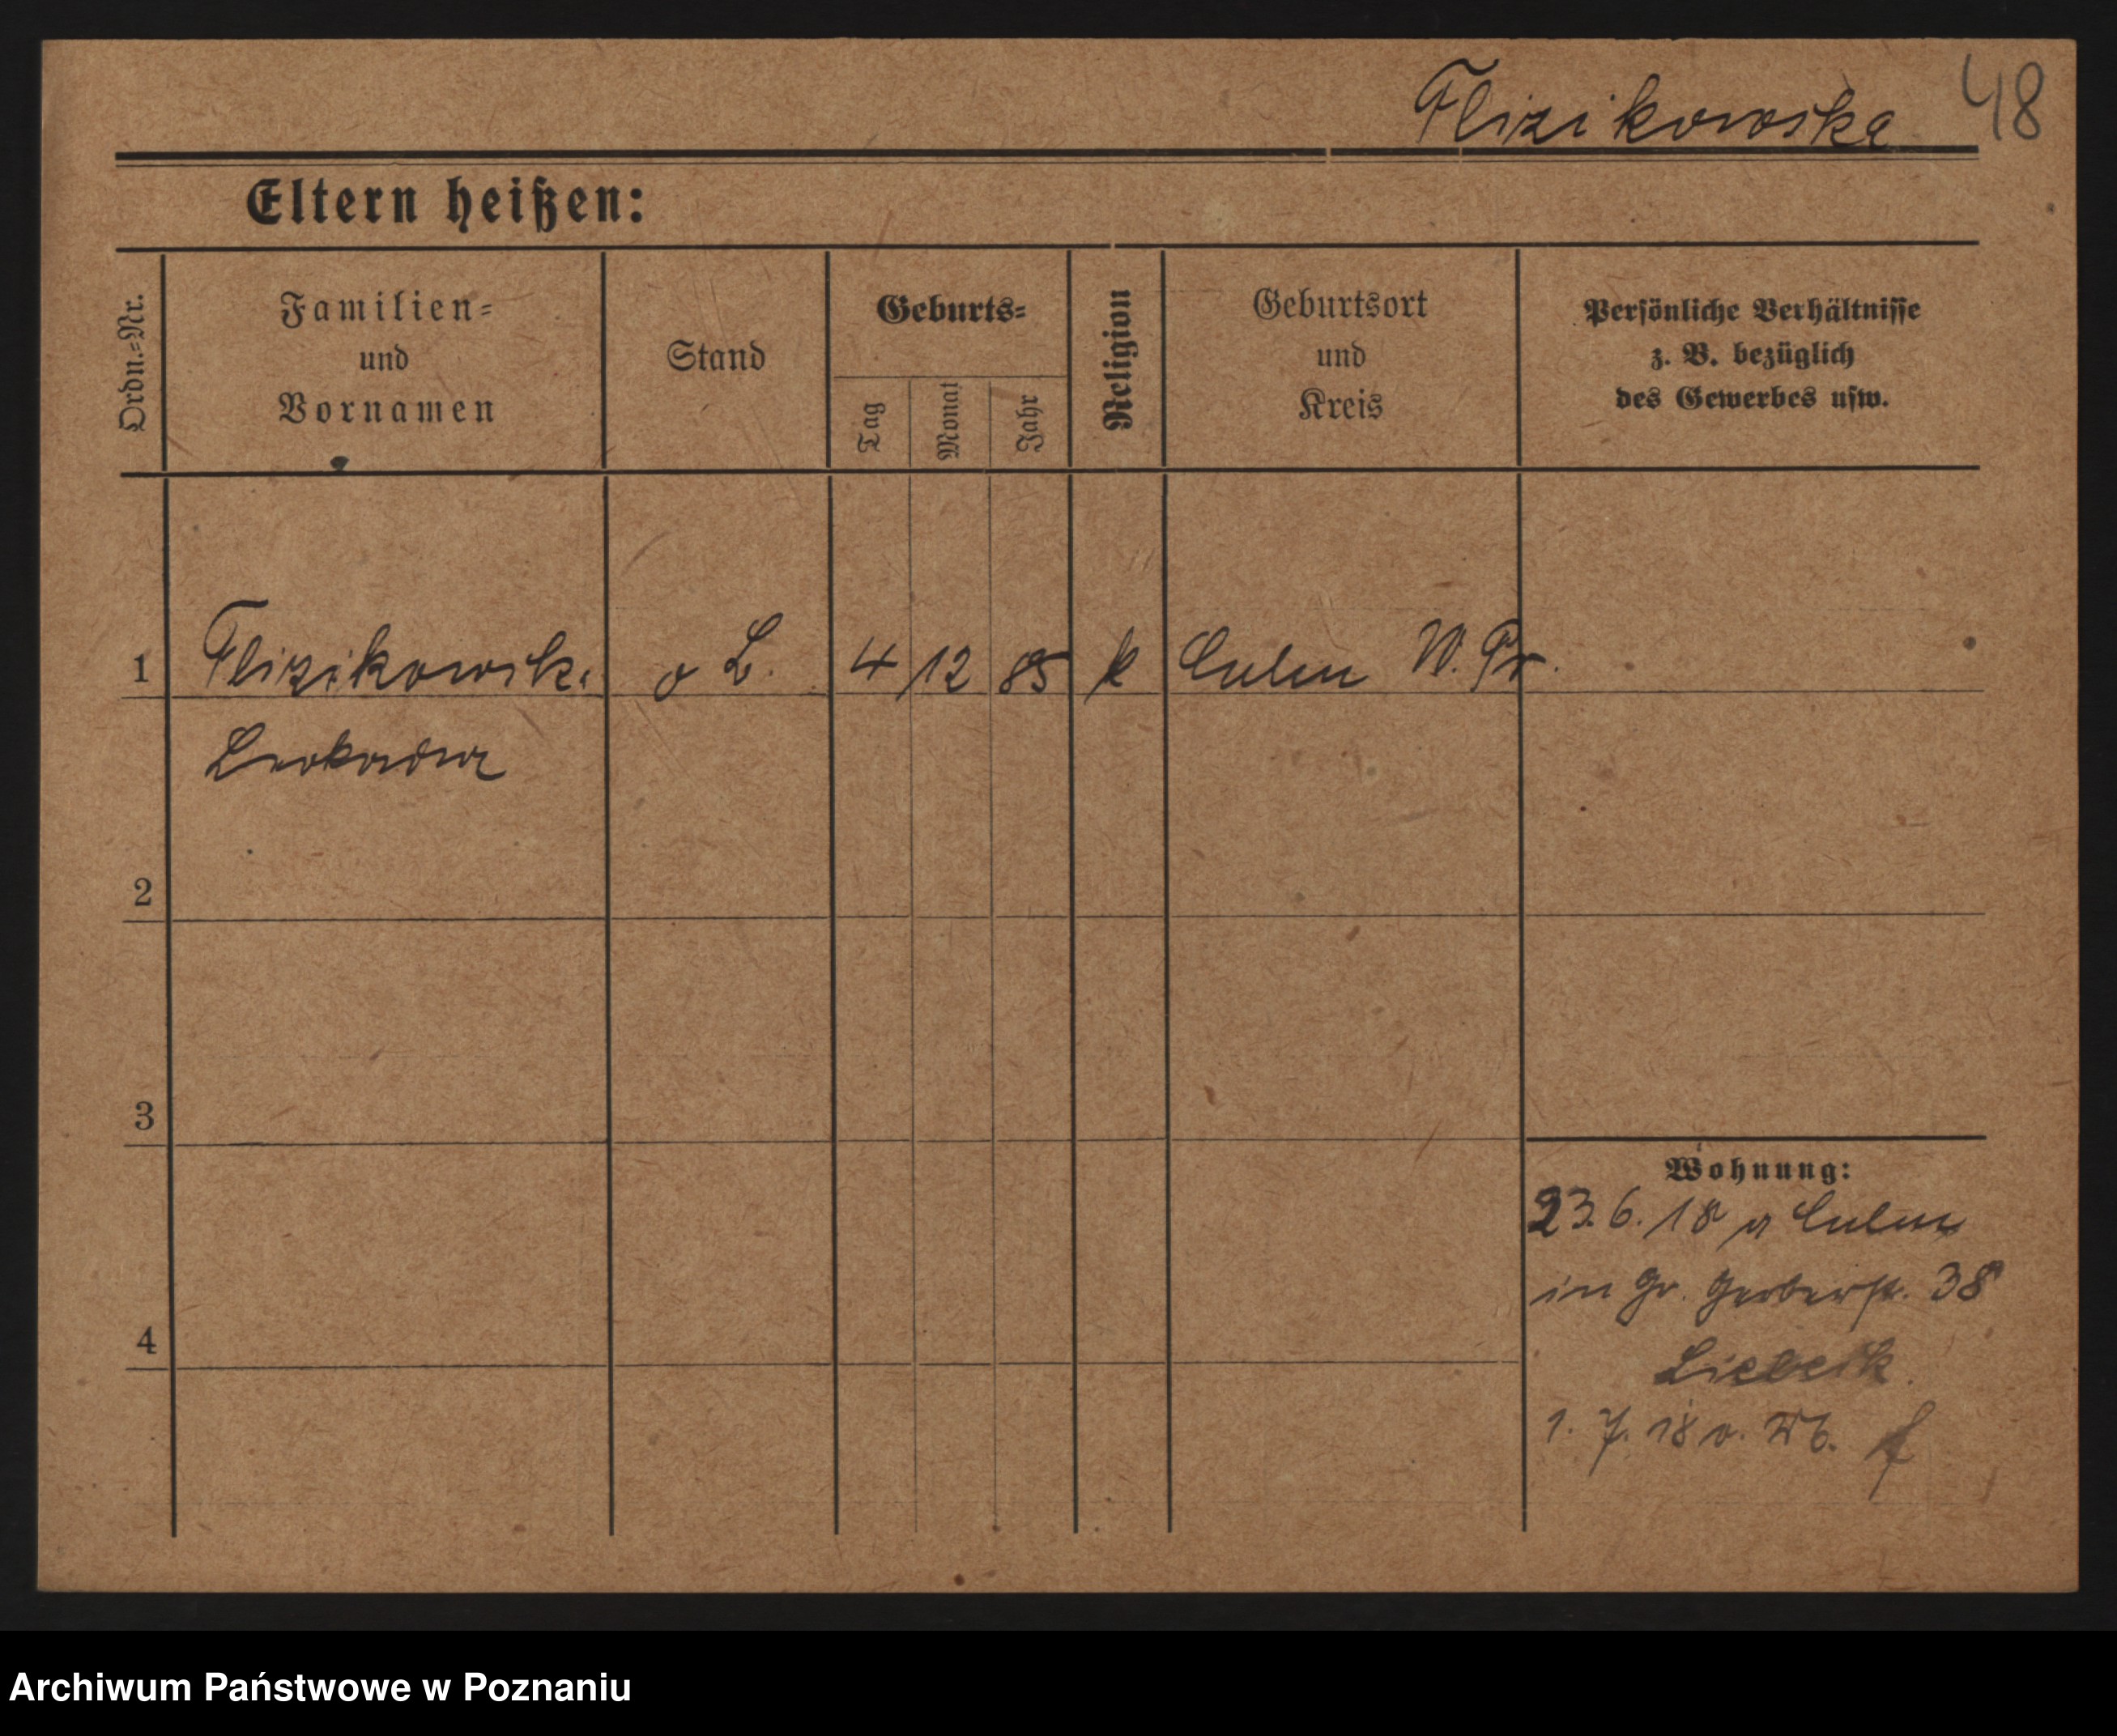 Flizikowska 48
Eltern heißen:
Ordn.-Nr.
Familien-
und
Vornamen
Stand
Geburts-
Tag
Monat
Jahr
Religion
Geburtsort
und
Kreis
Persönliche Verhältnisse
z. B. bezüglich
des Gewerbes usw.
1 Flizikowsk. o L. 4 12 85 k Culm W. Pr.
Leokadia
2
3
4
Wohnung:
23.6.18 a Culm
in Gr. Gerberst. 38
1. 7. 18 v.
Archiwum Państwowe w Poznaniu